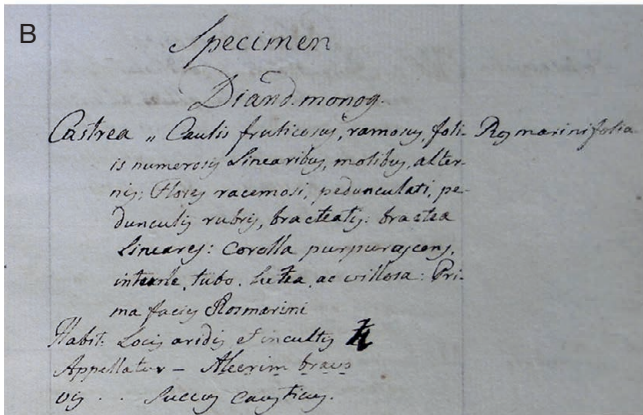 B
Specimen
Diand. monog.
Castrea „ Caulis fruticosus, ramosus, foli- Rosmarinifolia
is numerosis linearibus, molibus, alter-
nis; Flores racemosi, pedunculati, pe-
dunculis rubris, bracteatis: bractea
Lineares: Corolla purpurascens,
interne, tubo luteo, ac villosa: Pri-
ma facies Rosmarini
Habit. Locis aridis et incultis ♄
Appellatur — Alecrim bravo
Vis . . Succus causticus.